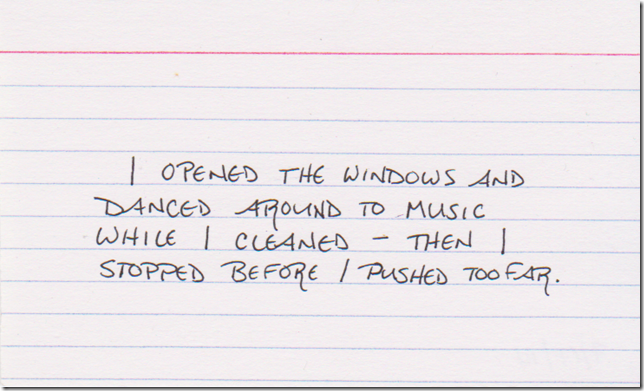 I OPENED THE WINDOWS AND
DANCED AROUND TO MUSIC
WHILE I CLEANED - THEN I
STOPPED BEFORE I PUSHED TOO FAR.